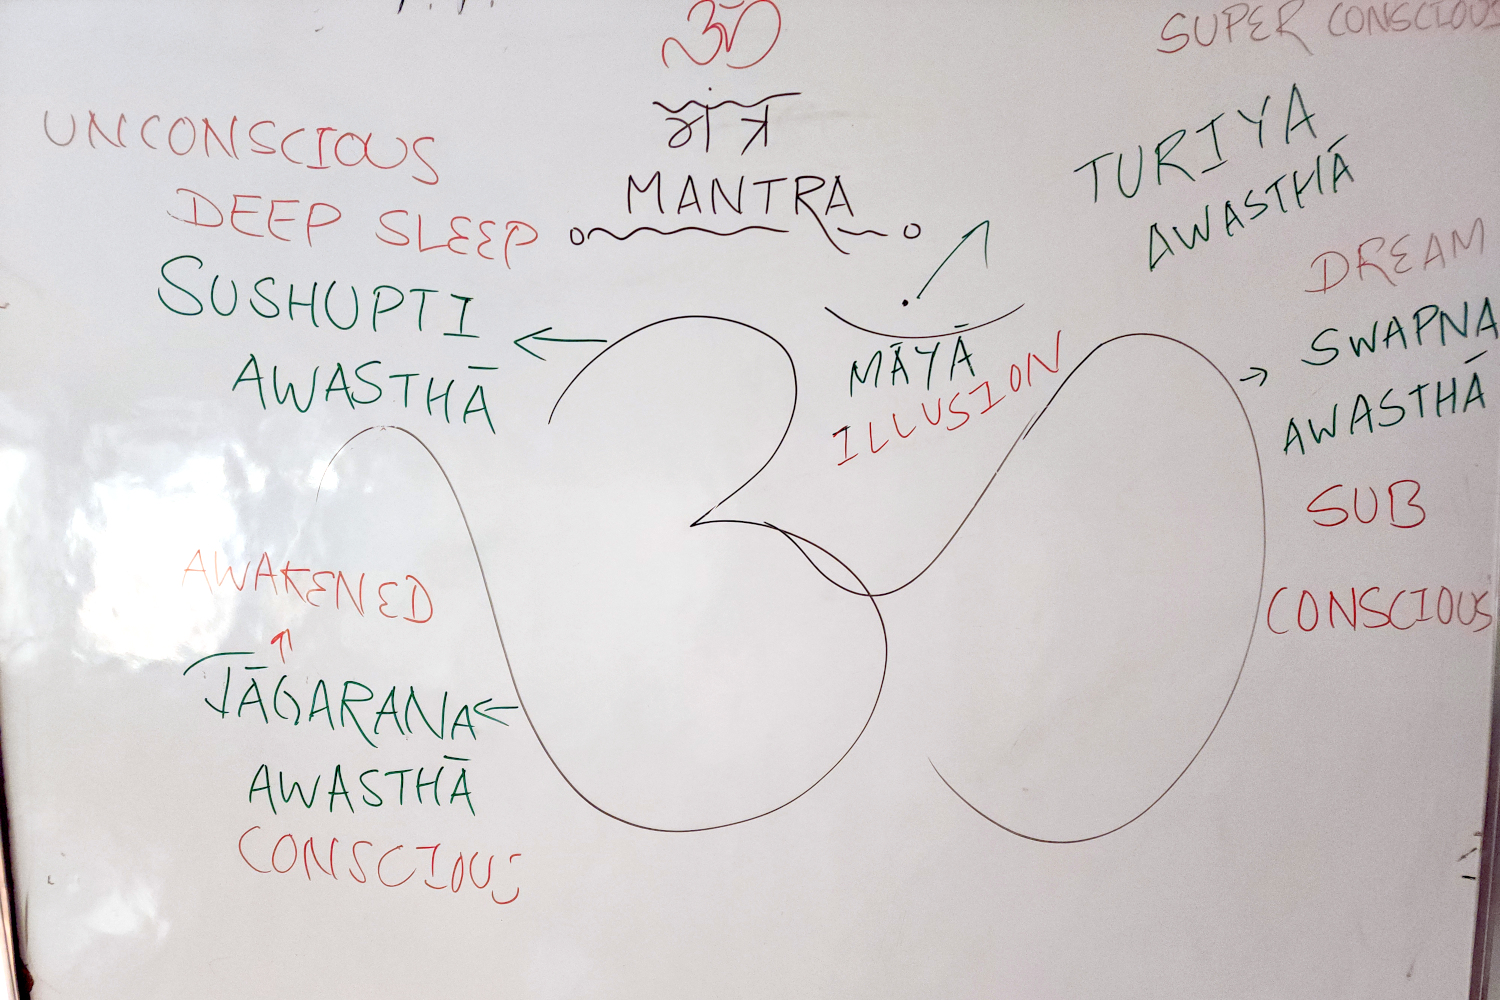 ॐ
मंत्र
MANTRA
SUPER CONSCIOUS
TURIYA
AWASTHĀ
UNCONSCIOUS
DEEP SLEEP
SUSHUPTI
AWASTHĀ
MĀYĀ
ILLUSION
DREAM
SWAPNA
AWASTHĀ
SUB
CONSCIOUS
AWAKENED
JĀGARANA
AWASTHĀ
CONSCIOUS